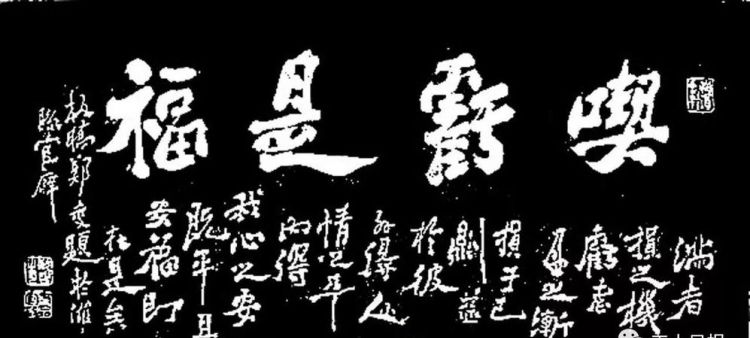 喫虧是福
滿者
損之機
虧者
盈之漸
損于己
則益
於彼
外得人
情之平
内得
我心之安
既平且
安福即
在是矣
板橋鄭燮題於濰
縣官廨